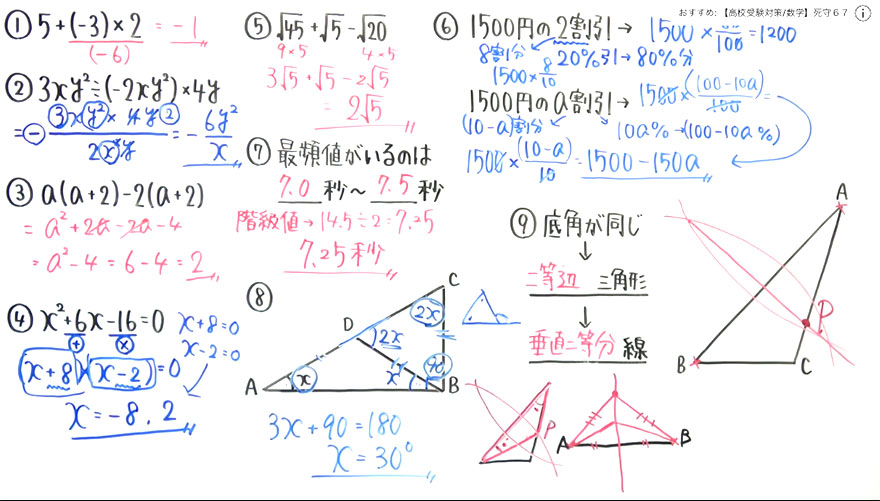 おすすめ: 【高校受験対策/数学】死守67
① 5+(-3)×2 = -1
(-6)
② 3xy²÷(-2xy²)×4y
= - 3x y² × 4y 2 / 2x y = - 6y²/x
③ a(a+2)-2(a+2)
= a²+2a-2a-4
= a²-4 = 6-4 = 2
④ x²+6x-16=0
+ ×
(x+8)(x-2)=0
x+8=0
x-2=0
x=-8, 2
⑤ √45+√5-√20
9×5 4×5
3√5+√5-2√5
= 2√5
⑥ 1500円の2割引→ 1500×80/100=1200
8割分 20%引→80%分
1500×8/10
1500円のa割引→ 1500×(100-10a)/100=
(10-a)割分 10a%→(100-10a%)
1500×(10-a)/10=1500-150a
⑦ 最頻値がいるのは
7.0 秒～ 7.5 秒
階級値→14.5÷2=7.25
7.25秒
⑧
C
2x
D
2x
A
x
x
90
B
3x+90=180
x=30°
⑨ 底角が同じ
↓
二等辺 三角形
↓
垂直二等分 線
A
P
B
C
P
A
B